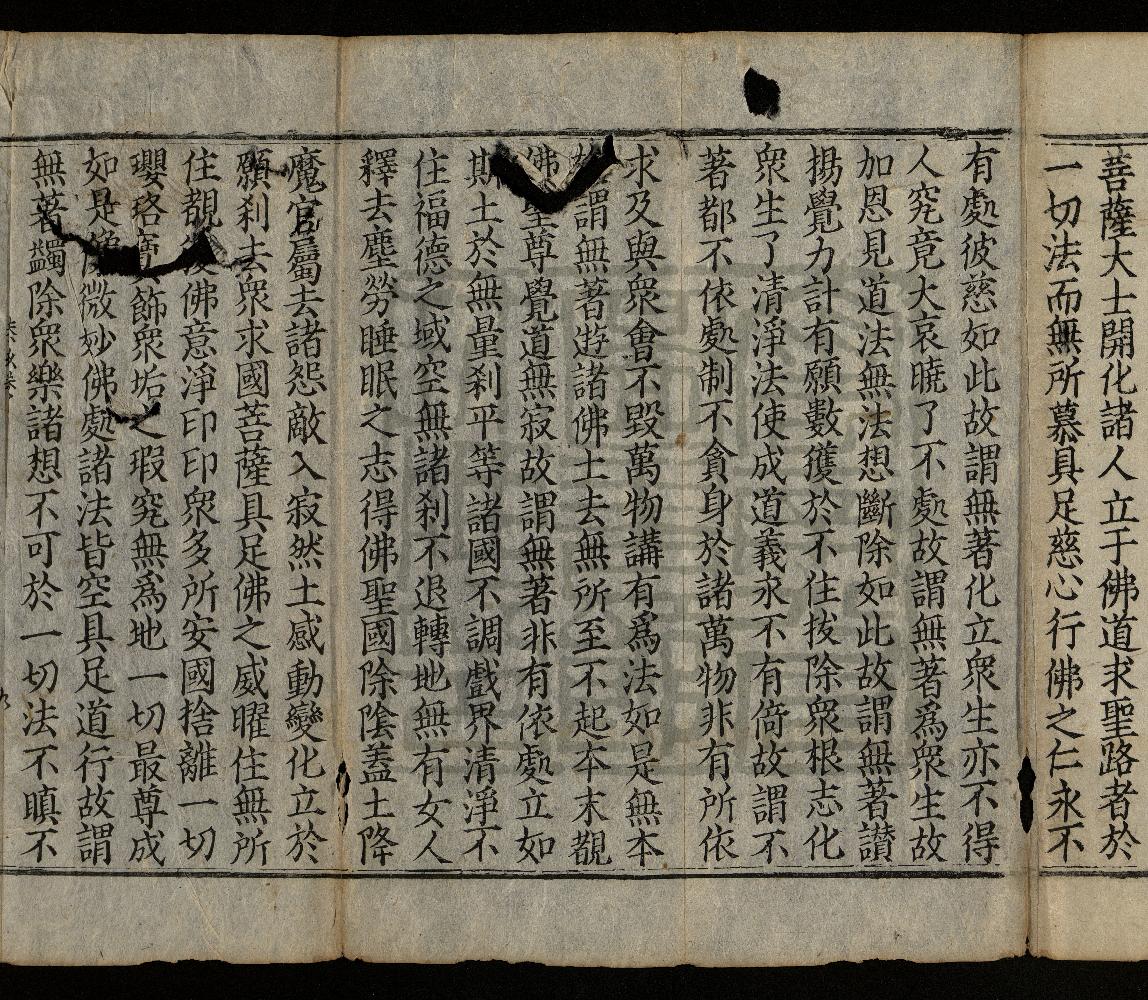 菩薩大士開化諸人立于佛道求聖路者於
一切法而無所慕具足慈心行佛之仁永不
有處彼慈如此故謂無著化立衆生亦不得
人究竟大哀曉了不處故謂無著爲衆生故
加恩見道法無法想斷除如此故謂無著讃
揚覺力計有願數獲於不住拔除衆根志化
衆生了清淨法使成道義永不有倚故謂不
著都不依處制不貪身於諸萬物非有所依
求及與衆會不毀萬物講有爲法如是無本
謂無著遊諸佛土去無所至不起本末覩
佛聖尊覺道無寂故謂無著非有依處立如
斯土於無量刹平等諸國不調戲界清淨不
住福德之域空無諸刹不退轉地無有女人
釋去塵勞睡眠之志得佛聖國除陰蓋土降
魔官屬去諸怨敵入寂然土感動變化立於
願刹去衆求國菩薩具足佛之威曜住無所
住覩佛意淨印印衆多所安國捨離一切
瓔珞寶飾衆垢之瑕究無爲地一切最尊成
如是微妙佛處諸法皆空具足道行故謂
無著蠲除衆樂諸想不可於一切法不瞋不